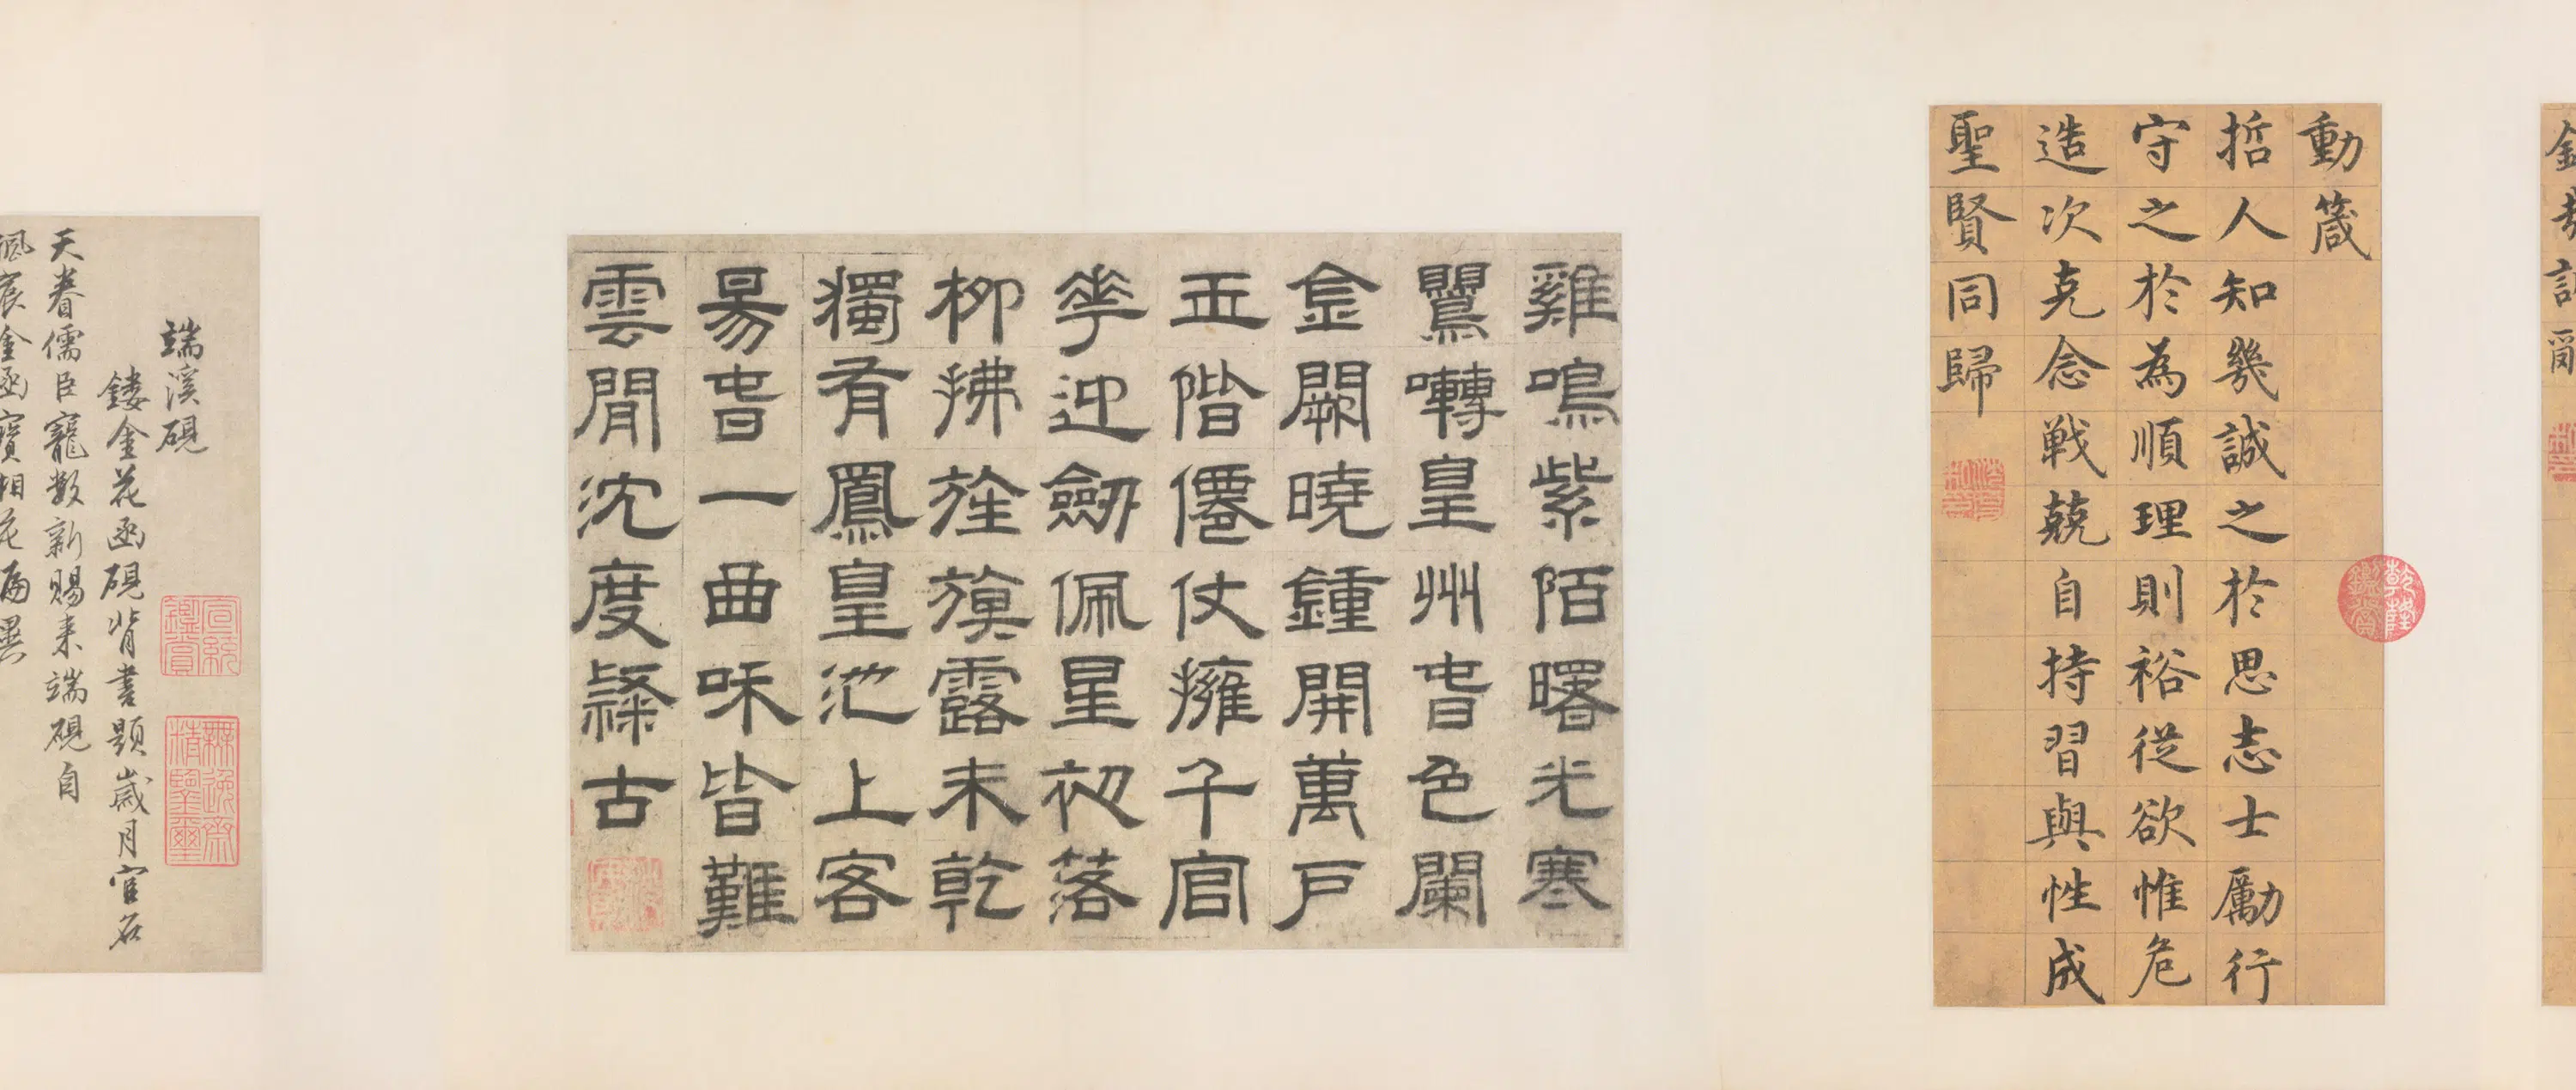 動箴
哲人知幾誠之於思志士勵行
守之於為順理則裕從欲惟危
造次克念戰兢自持習與性成
聖賢同歸
乾隆鑑賞
雞鳴紫陌曙光寒
鸎囀皇州旹色闌
金闕曉鍾開萬戶
玉階僊仗擁千官
華迎劔佩星初落
柳拂旌旗露未乾
獨有鳳皇池上客
昜旹一曲咊皆難
雲間沈度隸古
端溪硯
鏤金花函硯背書題歲月官名
宣統鑑賞
無逸齋精鑒璽
天眷儒臣寵數新賜來端硯自